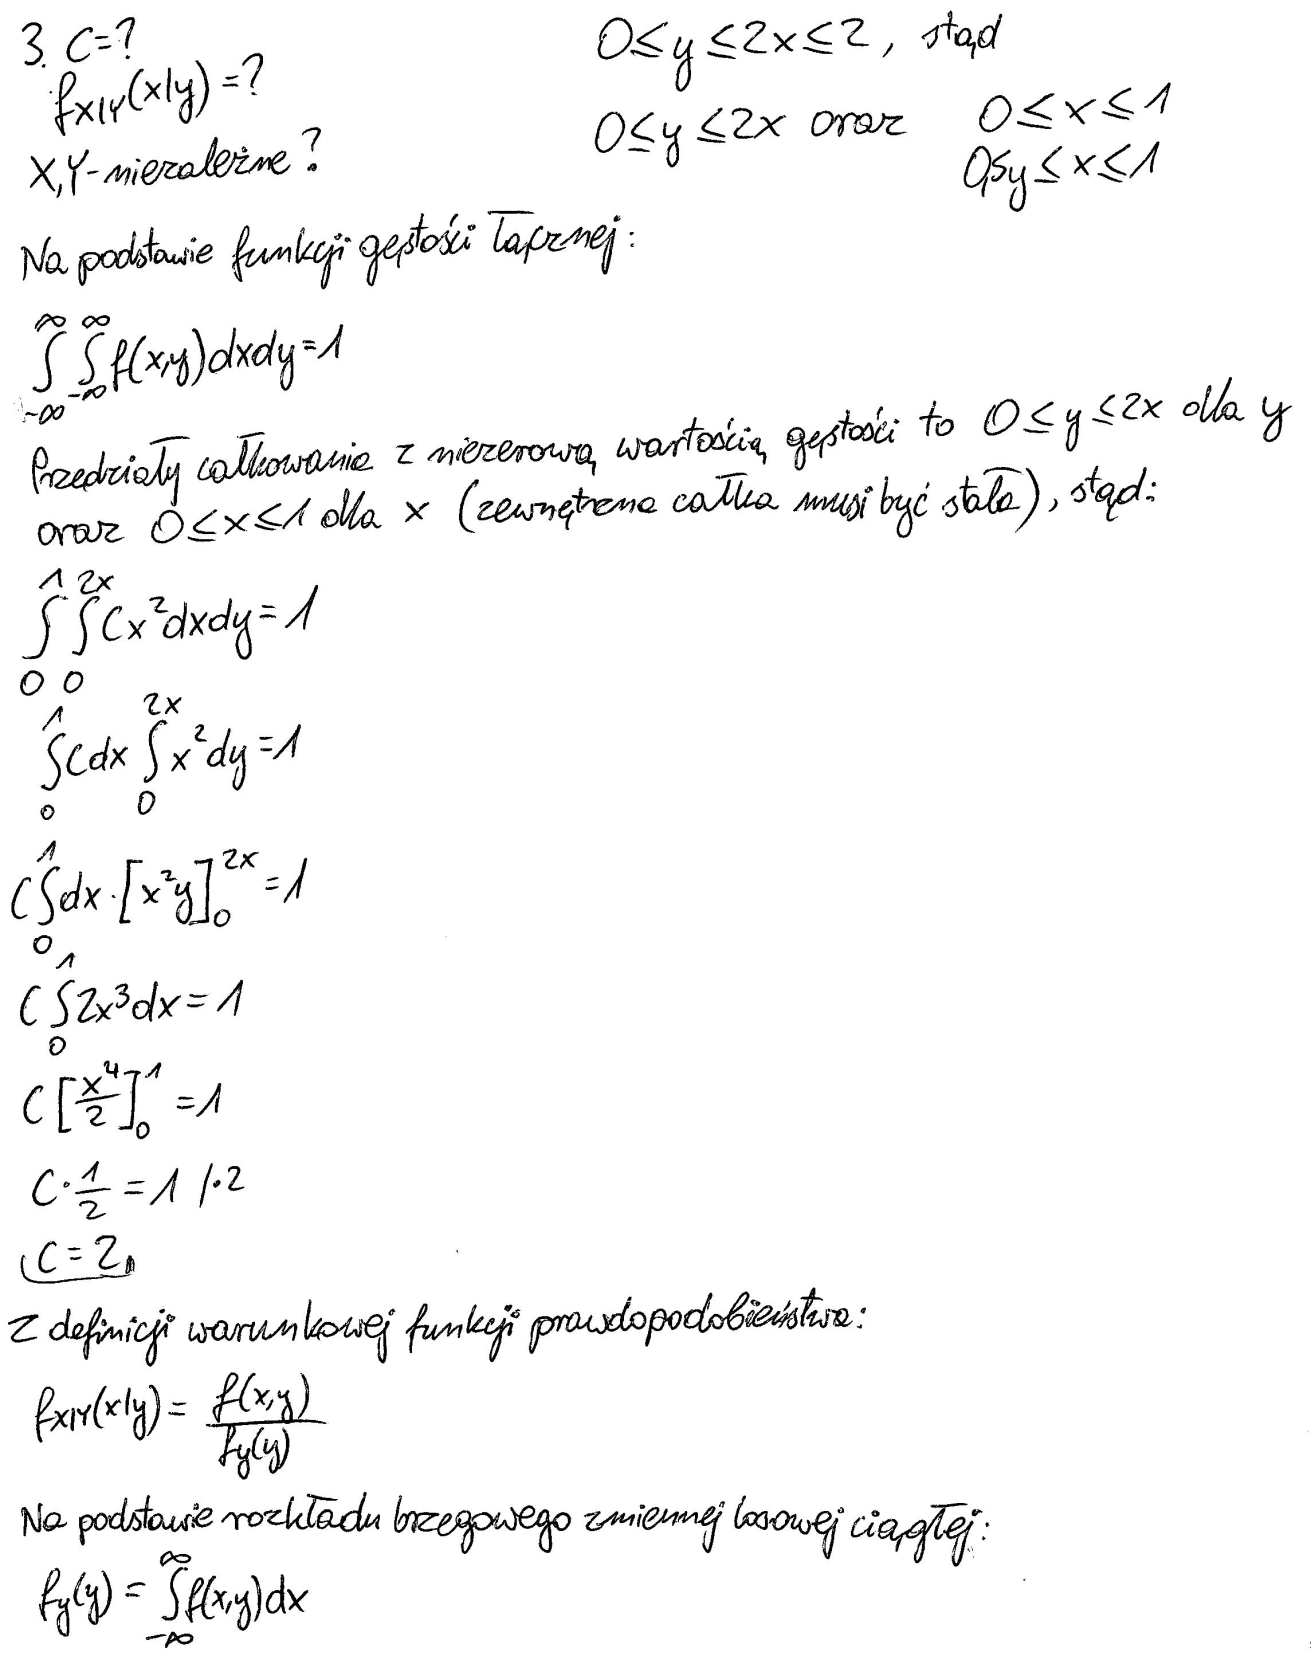 3. C=?
f_{X|Y}(x|y)=?
X,Y-niezależne?
0≤y≤2x≤2, stąd
0≤y≤2x oraz 0≤x≤1
0,5y≤x≤1
Na podstawie funkcji gęstości łącznej:
∫_{-∞}^{∞} ∫_{-∞}^{∞} f(x,y)dxdy=1
Przedziały całkowania z niezerową wartością gęstości to 0≤y≤2x dla y
oraz 0≤x≤1 dla x (zewnętrzna całka musi być stała), stąd:
∫_0^1 ∫_0^{2x} Cx²dxdy=1
∫_0^1 Cdx ∫_0^{2x} x²dy=1
C∫_0^1 dx·[x²y]_0^{2x}=1
C∫_0^1 2x³dx=1
C[x⁴/2]_0^1=1
C·1/2=1 /·2
C=2
Z definicji warunkowej funkcji prawdopodobieństwa:
f_{X|Y}(x|y)=f(x,y)/f_y(y)
Na podstawie rozkładu brzegowego zmiennej losowej ciągłej:
f_y(y)=∫_{-∞}^{∞} f(x,y)dx